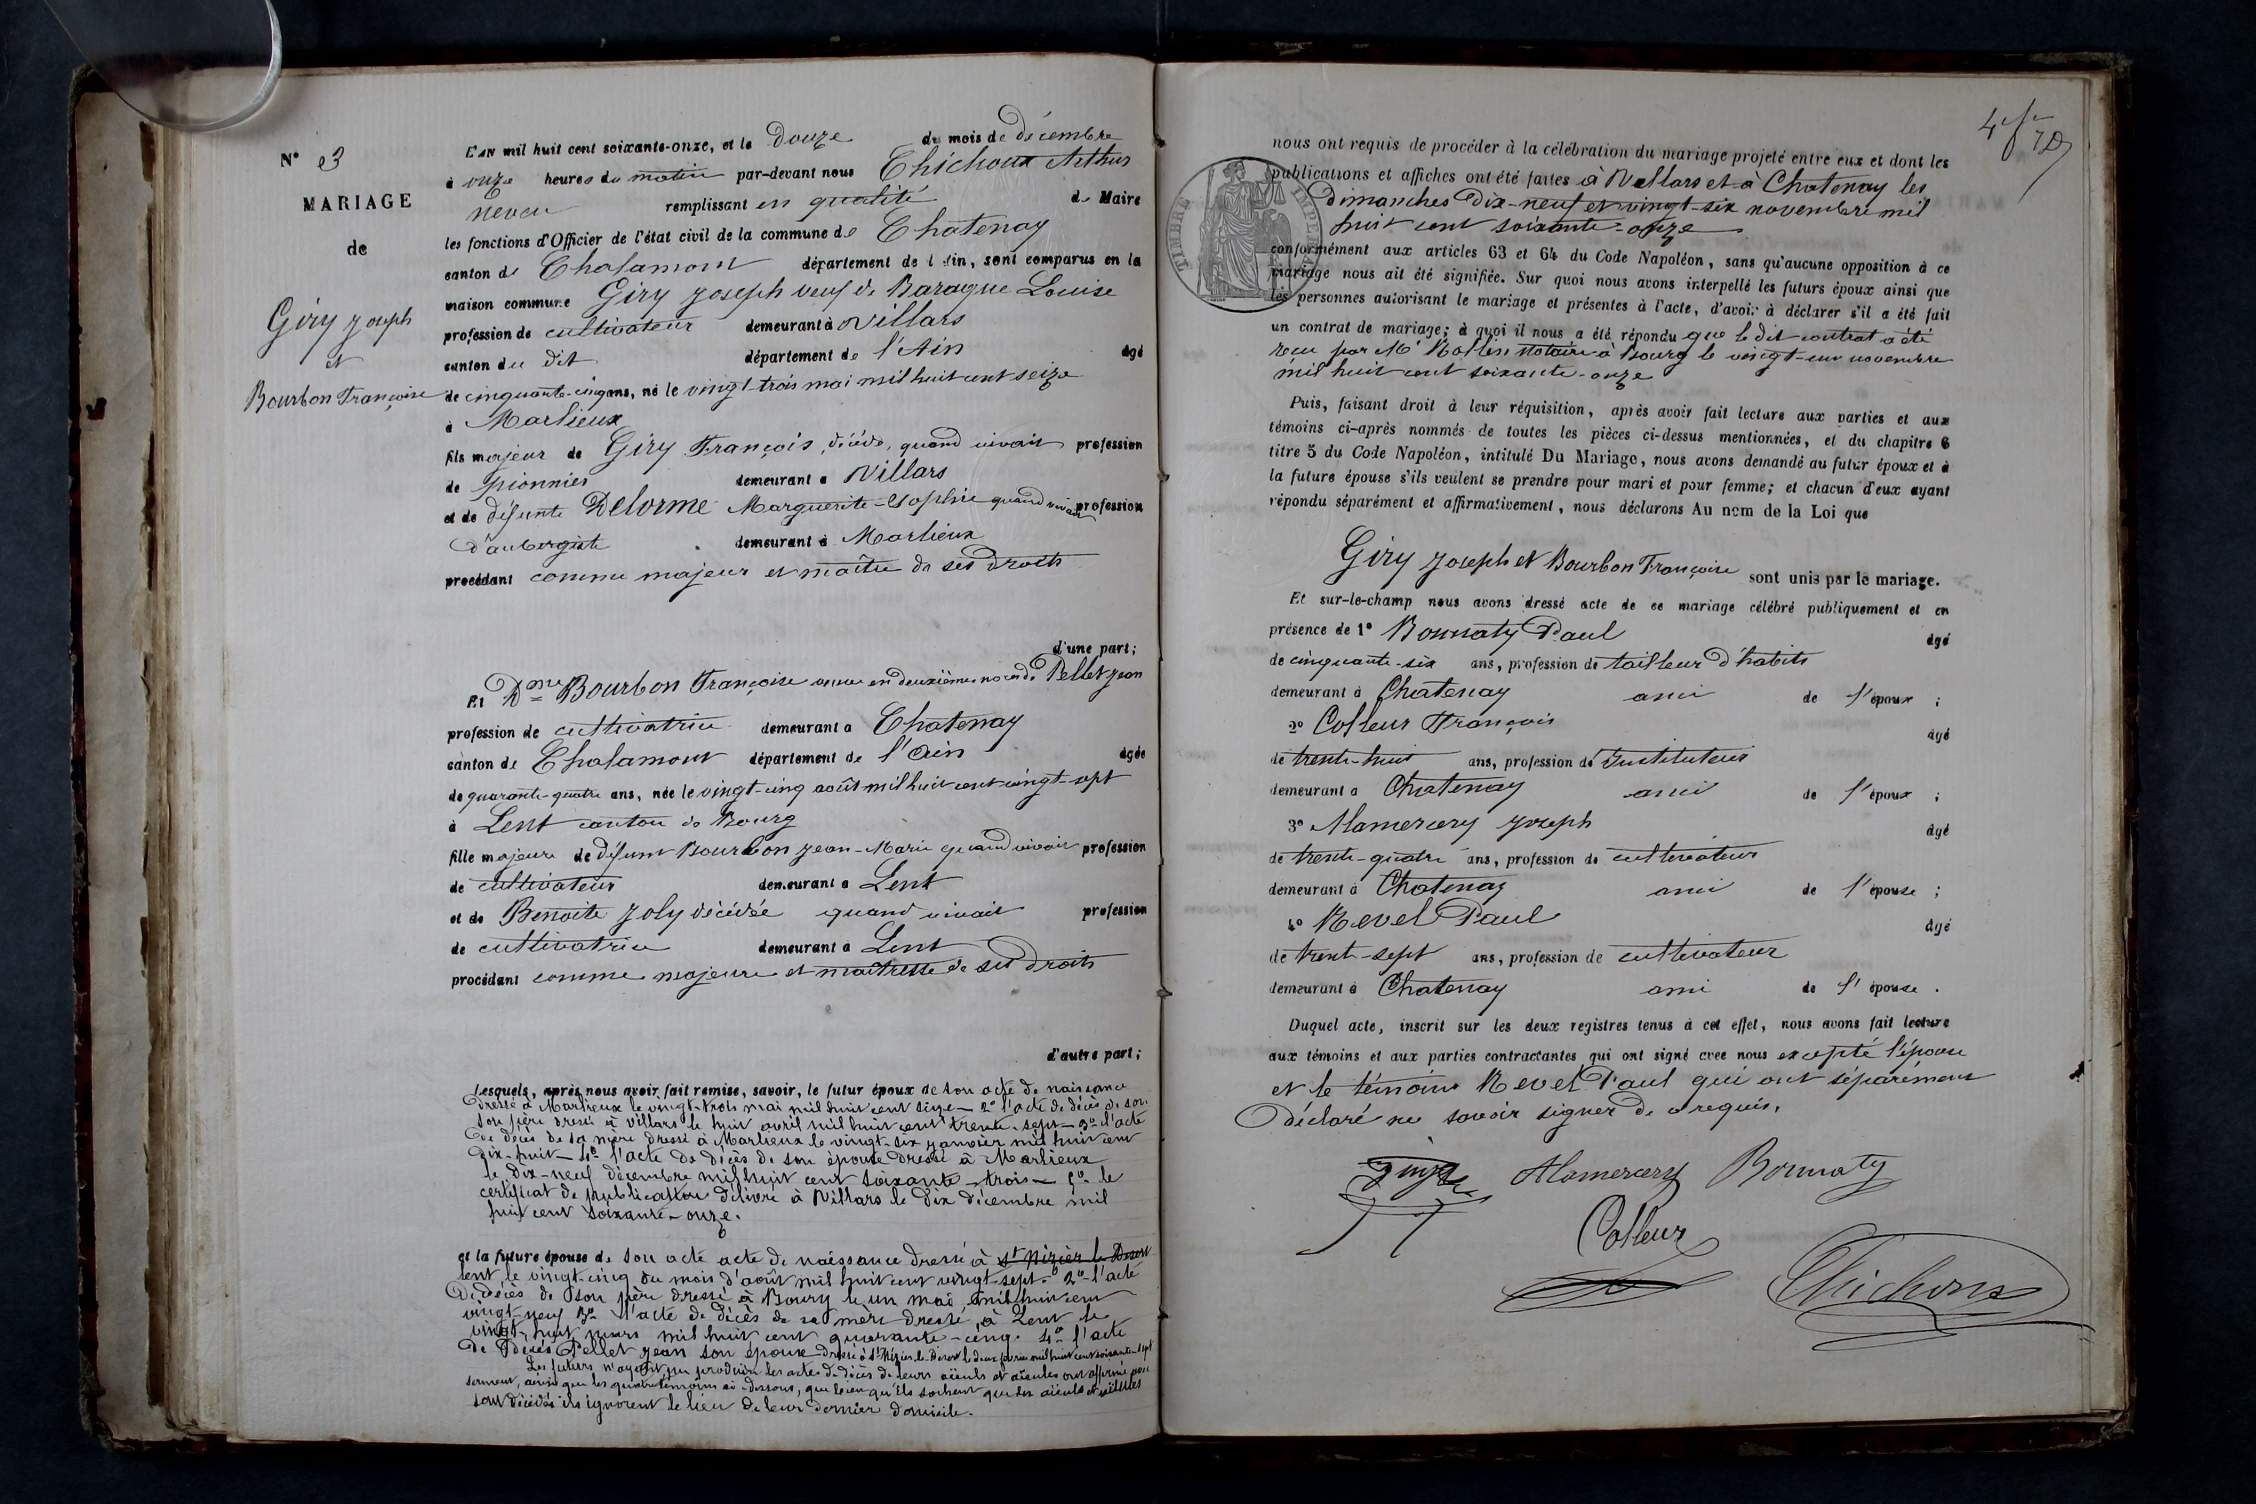 N° 23
MARIAGE
de
Giry Joseph
et
Bourbon Françoise
L'AN mil huit cent soixante-onze, et le Douze du mois de décembre
à onze heures du matin par-devant nous Chichoux Arthus
neveu remplissant en qualité de Maire
les fonctions d'Officier de l'état civil de la commune de Chatenay
canton de Chalamont département de l'Ain, sont comparus en la
maison commune Giry Joseph veuf de Baraque Louise
profession de cultivateur demeurant à Villars
canton du dit département de l'Ain âgé
de cinquante-cinq ans, né le vingt trois mai mil huit cent seize
à Marlieux
fils majeur de Giry François, décédé, quand vivait profession
de pionnier demeurant à Villars
et de défunte Delorme Marguerite-Sophie quand vivait profession
d'aubergiste demeurant à Marlieux
procédant comme majeur et maître de ses droits
d'une part;
Et Dme Bourbon Françoise veuve en deuxième noces de Pellet Jean
profession de cultivatrice demeurant à Chatenay
canton de Chalamont département de l'Ain âgée
de quarante-quatre ans, née le vingt-cinq août mil huit cent vingt-sept
à Lent canton de Bourg
fille majeure de défunt Bourbon Jean-Marie quand vivait profession
de cultivateur demeurant à Lent
et de Benoite Joly décédée quand vivait profession
de cultivatrice demeurant à Lent
procédant comme majeure et maîtresse de ses droits
d'autre part;
Lesquels, après nous avoir fait remise, savoir, le futur époux de son acte de naissance
dressé à Marlieux le vingt-trois mai mil huit cent seize - 2° l'acte de décès de son
son père dressé à Villars le huit avril mil huit cent trente-sept - 3° l'acte
de décès de sa mère dressé à Marlieux le vingt-six janvier mil huit cent
dix-huit - 4° l'acte de décès de son épouse dressé à Marlieux
le dix-neuf décembre mil huit cent soixante-trois - 5° le
certificat de publication délivré à Villars le dix décembre mil
huit cent soixante-onze.
et la future épouse de son acte acte de naissance dressé à St Nizier le Désert
Lent le vingt-cinq du mois d'août mil huit cent vingt-sept. 2° l'acte
de décès de son père dressé à Bourg le un mai mil huit cent
vingt-neuf 3° l'acte de décès de sa mère dressé à Lent le
vingt-huit mars mil huit cent quarante-cinq. 4° l'acte
de décès Pellet Jean son époux dressé à St Nizier-le-Désert le deux février mil huit cent soixante-sept
Les futurs n'ayant pu produire les actes de décès de leurs aïeuls et aïeules ont affirmé avec
serment, ainsi que les quatre témoins ci-dessous, que bien qu'ils sachent que les aïeuls et aïeules
sont décédés ils ignorent le lieu de leur dernier domicile.
TIMBRE IMPERIAL
nous ont requis de procéder à la célébration du mariage projeté entre eux et dont les
publications et affiches ont été faites à Villars et à Chatenay les
dimanches dix-neuf et vingt-six novembre mil
huit cent soixante-onze
conformément aux articles 63 et 64 du Code Napoléon, sans qu'aucune opposition à ce
mariage nous ait été signifiée. Sur quoi nous avons interpellé les futurs époux ainsi que
les personnes autorisant le mariage et présentes à l'acte, d'avoir à déclarer s'il a été fait
un contrat de mariage; à quoi il nous a été répondu que le dit contrat a été
reçu par Me notaire à Bourg le vingt-un novembre
mil huit cent soixante-onze
Puis, faisant droit à leur réquisition, après avoir fait lecture aux parties et aux
témoins ci-après nommés de toutes les pièces ci-dessus mentionnées, et du chapitre 6
titre 5 du Code Napoléon, intitulé Du Mariage, nous avons demandé au futur époux et à
la future épouse s'ils veulent se prendre pour mari et pour femme; et chacun d'eux ayant
répondu séparément et affirmativement, nous déclarons Au nom de la Loi que
Giry Joseph et Bourbon Françoise sont unis par le mariage.
Et sur-le-champ nous avons dressé acte de ce mariage célébré publiquement et en
présence de 1° Bonnaty Paul âgé
de cinquante-six ans, profession de tailleur d'habits
demeurant à Chatenay ami de l'époux ;
2° Colleur François âgé
de trente-huit ans, profession d'Instituteur
demeurant à Chatenay ami de l'époux ;
3° Alamercery Joseph âgé
de trente-quatre ans, profession de cultivateur
demeurant à Chatenay ami de l'épouse ;
4° Revel Paul âgé
de trente-sept ans, profession de cultivateur
demeurant à Chatenay ami de l'épouse .
Duquel acte, inscrit sur les deux registres tenus à cet effet, nous avons fait lecture
aux témoins et aux parties contractantes qui ont signé avec nous excepté l'épouse
et le témoin Revel Paul qui ont séparément
déclaré ne savoir signer de ce requis.
Alamercery Bonnaty
Colleur
Chichoux